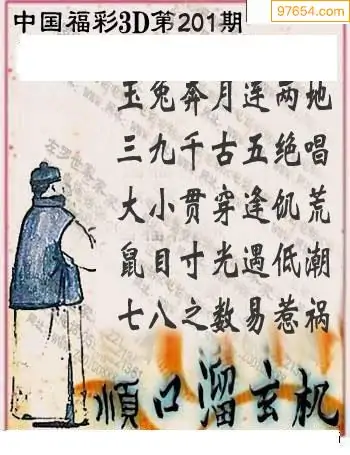 97654.com
中国福彩3D第201期
玉兔奔月连两地
三九千古五绝唱
大小贯穿逢饥荒
鼠目寸光遇低潮
七八之数易惹祸
顺口溜玄机